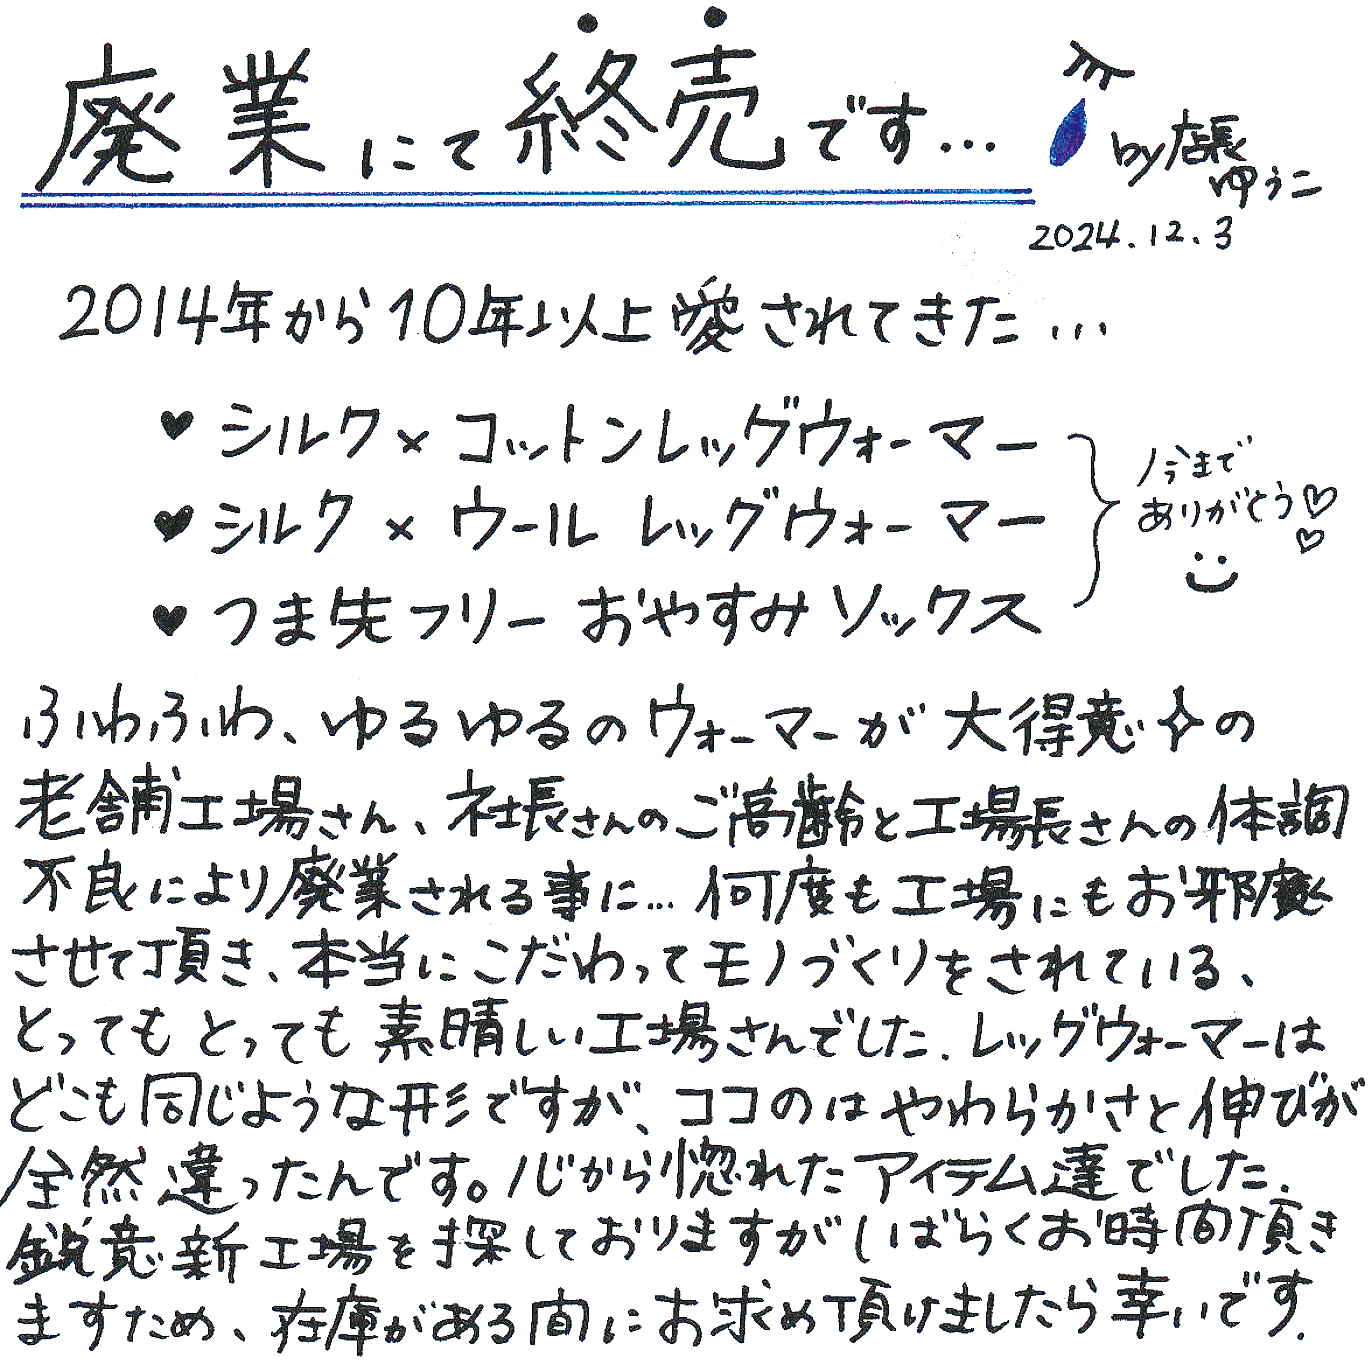 廃業にて終売です…
by 店長
ゆうこ
2024.12.3
2014年から10年以上愛されてきた…
♥ シルク×コットンレッグウォーマー
♥ シルク×ウールレッグウォーマー
♥ つま先フリーおやすみソックス
今まで
ありがとう♡
♡
ふわふわ、ゆるゆるのウォーマーが大得意✧の
老舗工場さん、社長さんのご高齢と工場長さんの体調
不良により廃業される事に…何度も工場にもお邪魔
させて頂き、本当にこだわってモノづくりをされている、
とってもとっても素晴しい工場さんでした。レッグウォーマーは
どこも同じような形ですが、ココのはやわらかさと伸びが
全然違ったんです。心から惚れたアイテム達でした。
鋭意新工場を探しておりますがしばらくお時間頂き
ますため、在庫がある間にお求め頂けましたら幸いです。